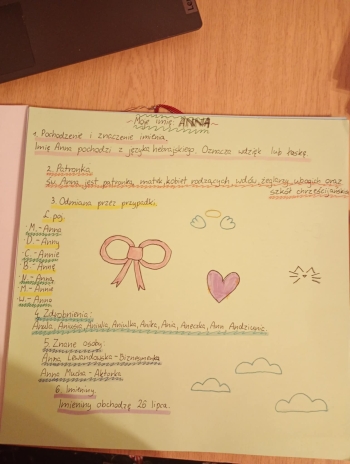 Moje imię: ANNA
1. Pochodzenie i znaczenie imienia
Imię Anna pochodzi z języka hebrajskiego. Oznacza wdzięk lub łaskę
2. Patronka
Św. Anna jest patronką matek kobiet rodzących wdów żeglarzy ubogich oraz
szkół chrześcijańskich
3. Odmiana przez przypadki
L. poj.
M. - Anna
D. - Anny
C. - Annie
B. - Annę
N. - Anną
M. - Annie
W. - Anno
4. Zdrobnienia:
Anula, Anusia, Aniulka, Anika, Ania, Aneczka, Ann
5. Znane osoby:
Anna Lewandowska - Biznesmenka
Anna Mucha - Aktorka
6. Imieniny
Imieniny obchodzę 26 lipca